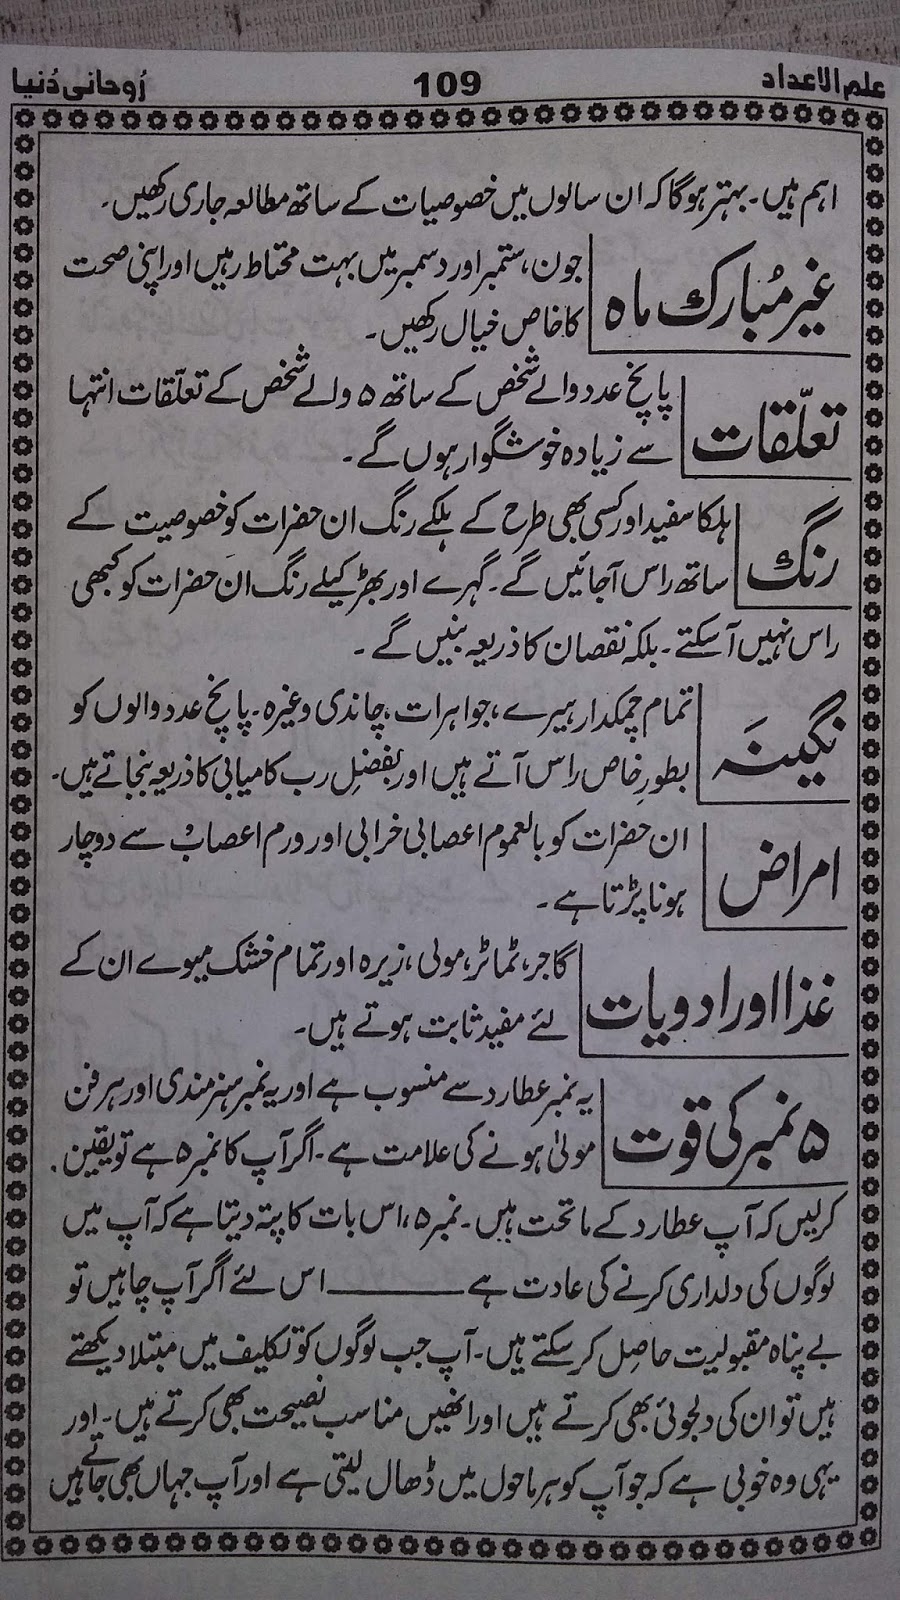 علم الاعداد 109 رُوحانی دُنیا
اہم ہیں۔ بہتر ہوگا کہ ان سالوں میں خصوصیات کے ساتھ مطالعہ جاری رکھیں۔
غیر مُبارک ماہ
جون، ستمبر اور دسمبر میں بہت محتاط رہیں اور اپنی صحت
کا خاص خیال رکھیں۔
تعلّقات
پانچ عدد والے شخص کے ساتھ ۵ والے شخص کے تعلّقات انتہا
سے زیادہ خوشگوار ہوں گے۔
رنگ
ہلکا سفید اور کسی بھی طرح کے ہلکے رنگ ان حضرات کو خصوصیت کے
ساتھ راس آجائیں گے۔ گہرے اور بھڑکیلے رنگ ان حضرات کو کبھی
راس نہیں آسکتے۔ بلکہ نقصان کا ذریعہ بنیں گے۔
نگینہ
تمام چمکدار ہیرے، جواہرات، چاندی وغیرہ۔ پانچ عدد والوں کو
بطورِ خاص راس آتے ہیں اور بفضلِ رب کامیابی کا ذریعہ بنجاتے ہیں۔
امراض
ان حضرات کو بالعموم اعصابی خرابی اور ورم اعصاب سے دوچار
ہونا پڑتا ہے۔
غذا اور ادویات
گاجر، ٹماٹر، مولی، زیرہ اور تمام خشک میوے ان کے
لئے مفید ثابت ہوتے ہیں۔
۵ نمبر کی قوت
یہ نمبر عطارد سے منسوب ہے اور یہ نمبر ہنر مندی اور ہر فن
مولیٰ ہونے کی علامت ہے۔ اگر آپ کا نمبر ۵ ہے تو یقین
کرلیں کہ آپ عطارد کے ماتحت ہیں۔ نمبر ۵، اس بات کا پتہ دیتا ہے کہ آپ میں
لوگوں کی دلداری کرنے کی عادت ہے ــــــــــ اس لئے اگر آپ چاہیں تو
بے پناہ مقبولیت حاصل کرسکتے ہیں۔ آپ جب لوگوں کو تکلیف میں مبتلا دیکھتے
ہیں تو ان کی دلجوئی بھی کرتے ہیں اور انھیں مناسب نصیحت بھی کرتے ہیں۔ اور
یہی وہ خوبی ہے کہ جو آپ کو ہر ماحول میں ڈھال لیتی ہے اور آپ جہاں بھی جاتے ہیں